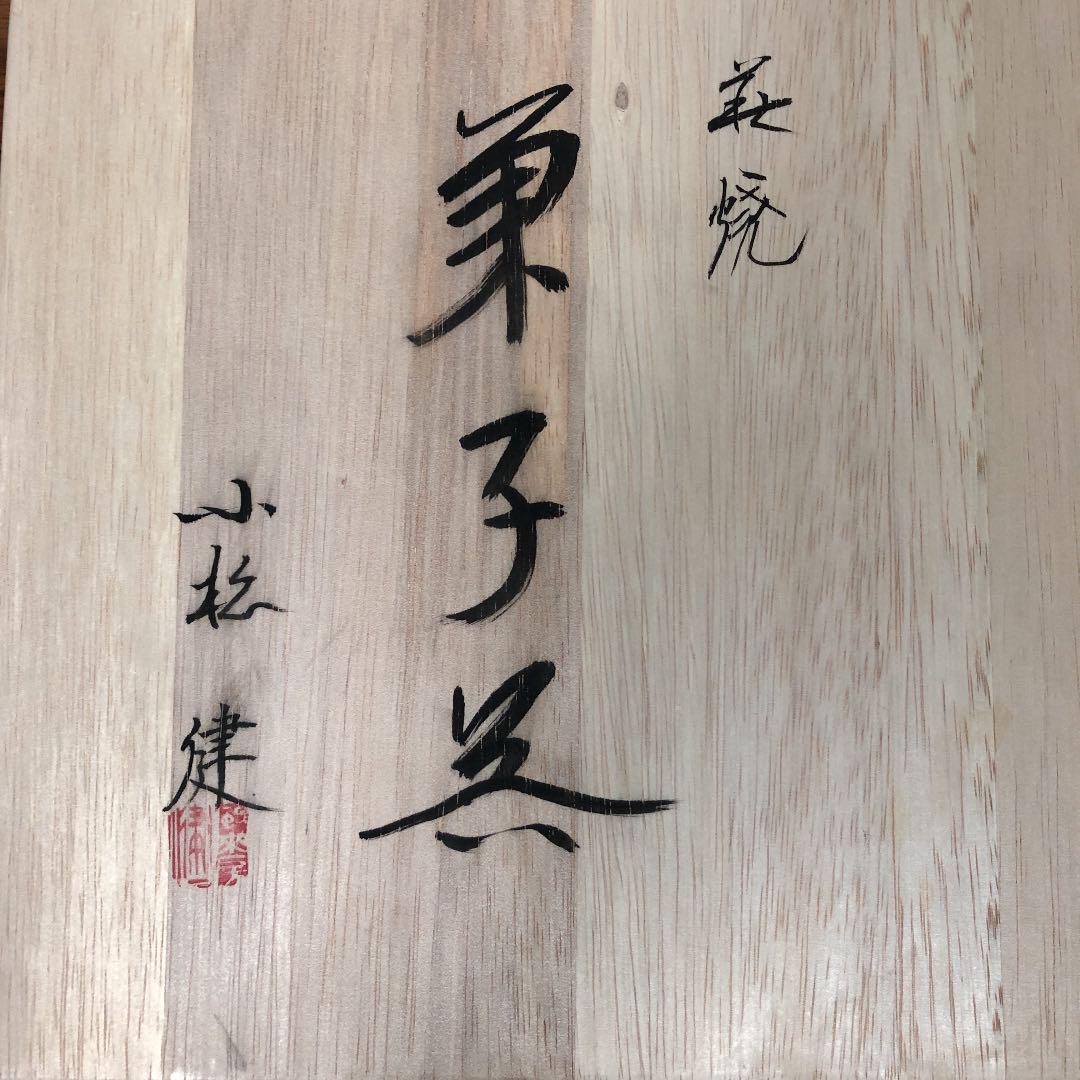 萩焼
菓子器
小松 健